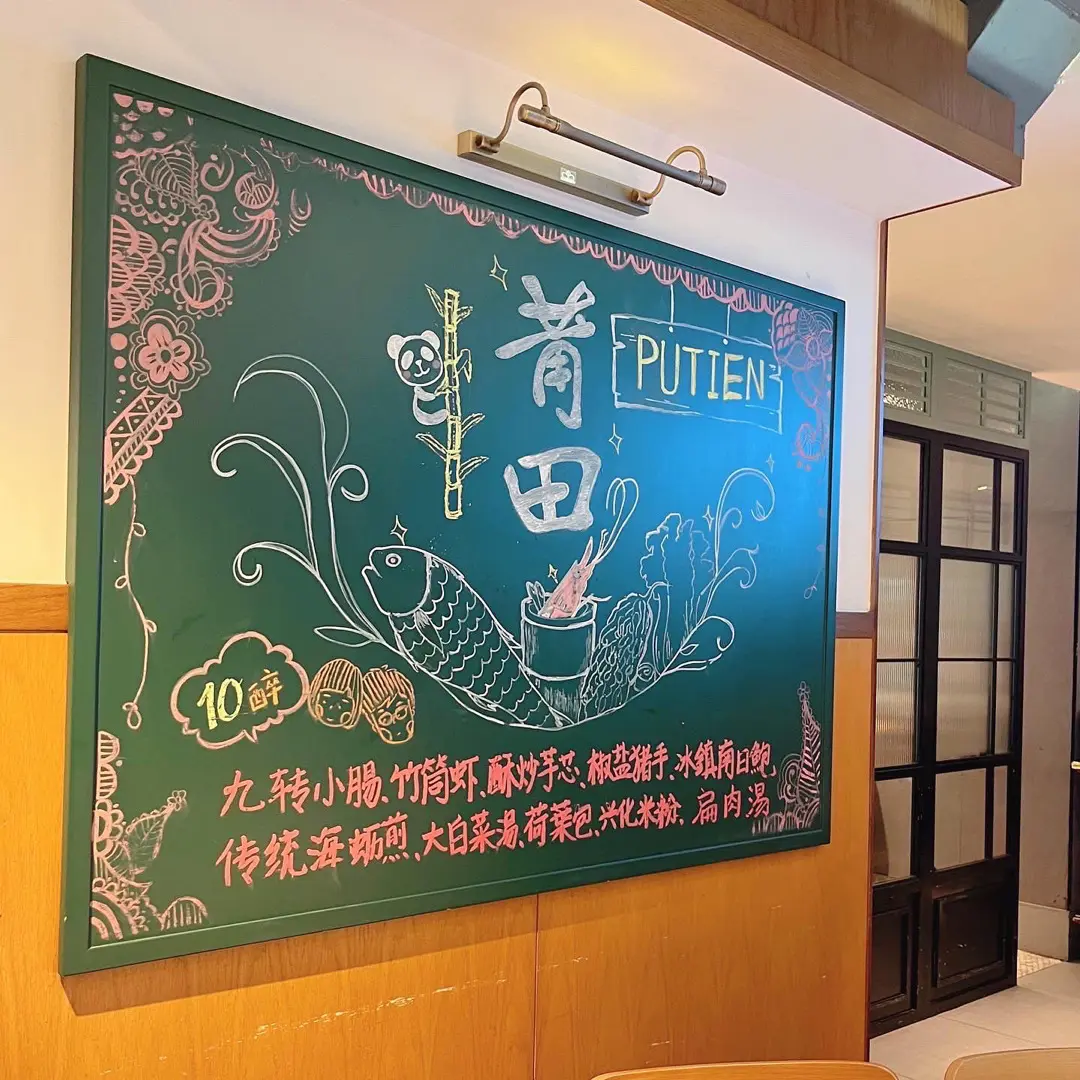 莆田
PUTIEN
10醉
九转小腸、竹筒虾、酥炒芋芯、椒盐猪手、冰鎮南日鲍
传统海蛎煎、大白菜湯、荷葉包、兴化米粉、扁肉湯